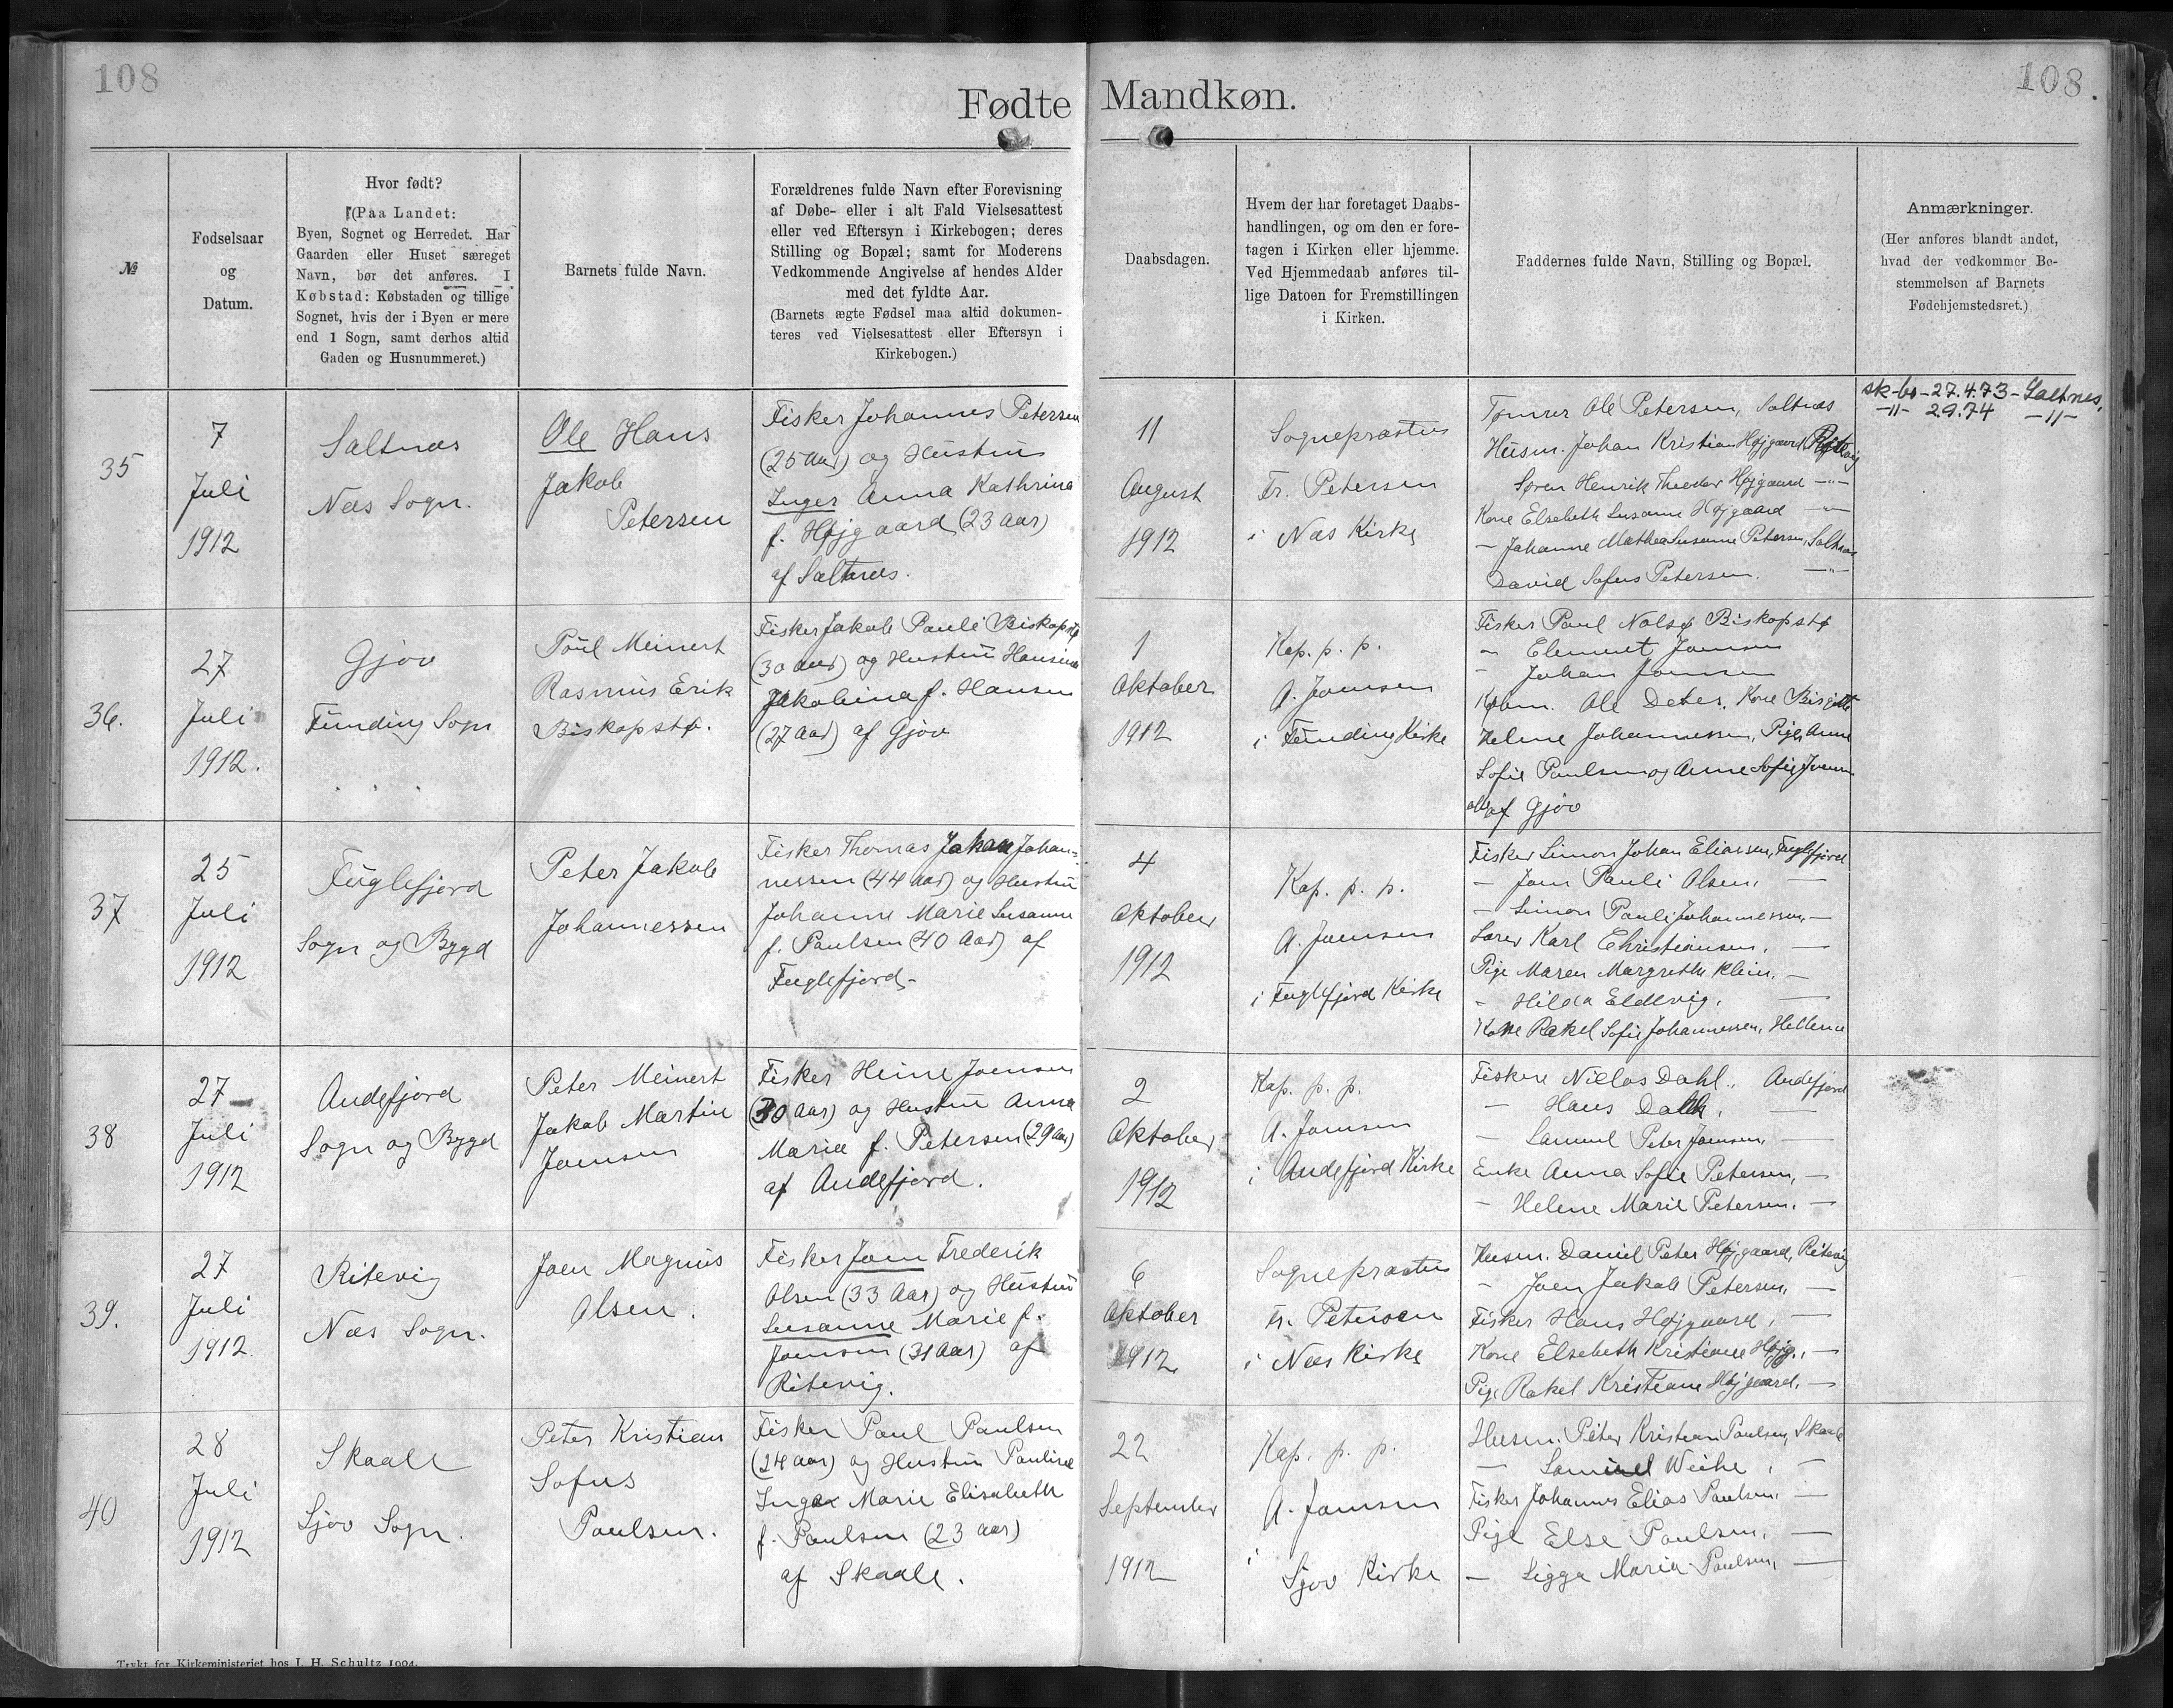 108
108.
Fødte Mandkøn.
№
Fødselsaar
og
Datum.
Hvor født?
(Paa Landet:
Byen, Sognet og Herredet. Har
Gaarden eller Huset særeget
Navn, bør det anføres. I
Købstad: Købstaden og tillige
Sognet, hvis der i Byen er mere
end 1 Sogn, samt derhos altid
Gaden og Husnummeret.)
Barnets fulde Navn.
Forældrenes fulde Navn efter Forevisning
af Døbe- eller i alt Fald Vielsesattest
eller ved Eftersyn i Kirkebogen; deres
Stilling og Bopæl; samt for Moderens
Vedkommende Angivelse af hendes Alder
med det fyldte Aar.
(Barnets ægte Fødsel maa altid dokumen-
teres ved Vielsesattest eller Eftersyn i
Kirkebogen.)
Daabsdagen.
Hvem der har foretaget Daabs-
handlingen, og om den er fore-
tagen i Kirken eller hjemme.
Ved Hjemmedaab anføres til-
lige Datoen for Fremstillingen
i Kirken.
Faddernes fulde Navn, Stilling og Bopæl.
Anmærkninger.
(Her anføres blandt andet,
hvad der vedkommer Be-
stemmelsen af Barnets
Fødehjemstedsret.)
35
7
Juli
1912
Saltnæs
Næs Sogn.
Ole Hans
Jakob
Petersen
Fisker Johannes Petersen
(25 Aar) og Hustru
Inger Anna Kathrina
f. Højgaard (23 Aar)
af Saltnæs.
11
August
1912
Sognepræsten
Fr. Petersen
i Næs Kirke
Tømrer Ole Petersen, Saltnæs
Husm. Johan Kristian Højgaard, Ritevig
Søren Henrik Theodor Højgaard -"-
Kone Elsebeth Susanne Højgaard -"-
- Johanne Mathea Susanne Petersen, Saltnæs
David Sofus Petersen. -"-
sk-bo-27.4.73-Saltnes.
-"- 2.9.74 -"-
36.
27
Juli
1912.
Gjov
Funding Sogn
Poul Meinert
Rasmus Erik
Biskopstø.
Fisker Jakob Pauli Biskopstø
(30 Aar) og Hustru Hansine
Jakobina f. Hansen
(27 Aar) af Gjov
1
Oktober
1912
Kap. p. p.
A. Joensen
i Funding Kirke
Fisker Paul Nolsø Biskopstø
- Element Joensen
- Johan Joensen
Købm. Ole Peter, Kone Birgitte
Helene Johannessen, Pige Anne
Sofie Paulsen og Anne Sofie Joensen
alle af Gjov
37
25
Juli
1912
Fuglefjord
Sogn og Bygd
Peter Jakob
Johannessen
Fisker Thomas Johan Johan-
nessen (44 Aar) og Hustru
Johanne Marie Susanne
f. Paulsen (40 Aar) af
Fuglefjord.
4
Oktober
1912
Kap. p. p.
A. Joensen
i Fuglefjord Kirke
Fisker Simon Johan Eliassen, Fuglefjord
- Joen Pauli Olsen, -
- Simon Pauli Johannessen, -
Lærer Karl Christiansen, -
Pige Maren Margrethe Klein, -
- Hilda Eldevig, -
Kone Rakel Sofie Johannessen, Hellerne
38
27
Juli
1912
Andefjord
Sogn og Bygd
Peter Meinert
Jakob Martin
Joensen
Fisker Heine Joensen
(30 Aar) og Hustru Anna
Maria f. Petersen (29 Aar)
af Andefjord.
2
Oktober
1912
Kap. p. p.
A. Joensen
i Andefjord Kirke
Fiskere Niclas Dahl, Andefjord
- Hans Dahl, -
- Samuel Peter Joensen, -
Enke Anna Sofie Petersen, -
- Helene Marie Petersen, -
39.
27
Juli
1912.
Ritevig
Næs Sogn.
Joen Magnus
Olsen.
Fisker Joen Frederik
Olsen (33 Aar) og Hustru
Susanne Marie f.
Joensen (31 Aar) af
Ritevig.
6
Oktober
1912
Sognepræsten
Fr. Petersen
i Næs Kirke
Husm. Daniel Peter Højgaard, Ritevig
- Joen Jakob Petersen, -
Fisker Hans Højgaard, -
Kone Elsebeth Kristiane Højg., -
Pige Rakel Kristiane Højgaard, -
40
28
Juli
1912
Skaale
Sjov Sogn.
Peter Kristian
Sofus
Poulsen.
Fisker Paul Paulsen
(24 Aar) og Hustru Pauline
Inger Marie Elisabeth
f. Paulsen (23 Aar)
af Skaale.
22
September
1912
Kap. p. p.
A. Joensen
i
Sjov Kirke
Husm. Peter Kristian Paulsen, Skaale
- Samuel Weihe, -
Fisker Johannes Elias Paulsen, -
Pige Else Paulsen, -
- Sigga Maria Paulsen, -
Trykt for Kirkeministeriet hos J. H. Schultz 1904.